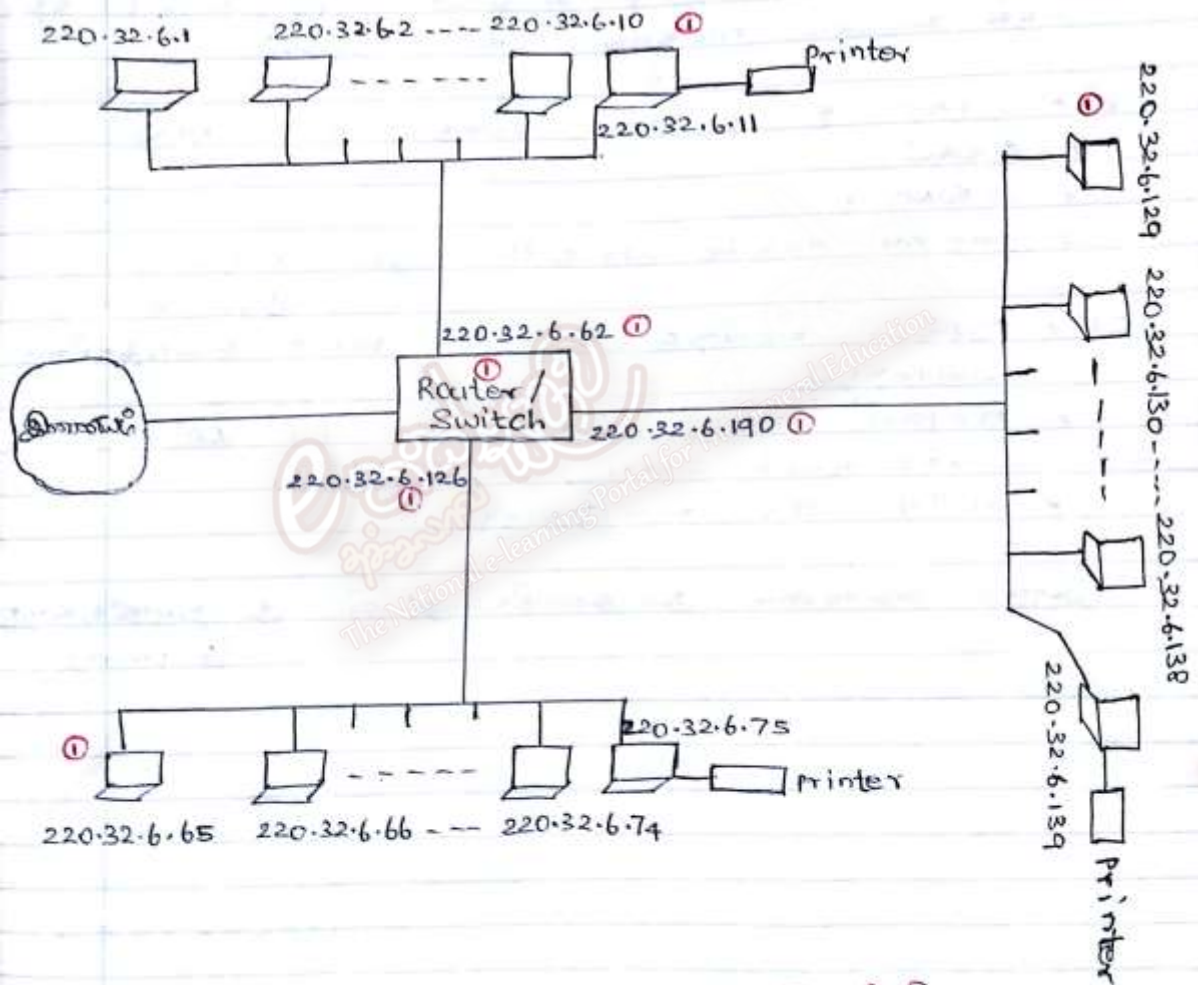 220.32.6.1 220.32.6.2 ---- 220.32.6.10 ①
printer
220.32.6.11
①
220.32.6.129
220.32.6.130 ----- 220.32.6.138
220.32.6.62 ①
①
Router/
Switch
220.32.6.190 ①
இணையம்
220.32.6.126
①
220.32.6.139
printer
①
220.32.6.75
printer
220.32.6.65 220.32.6.66 --- 220.32.6.74
The National e-learning Portal for the General Education